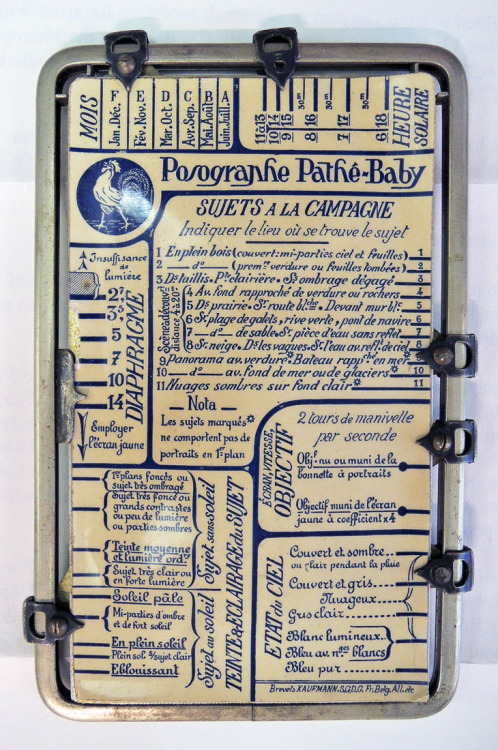 MOIS
F
Jan. Déc.
E
Fév. Nov.
D
Mar. Oct.
C
Avr. Sep.
B
Mai. Août
A
Juin. Juil.
11 à 13
10 14
9 15
30m
8 16
30m
7 17
30m
6 18
HEURE
SOLAIRE
Posographe Pathé-Baby
SUJETS A LA CAMPAGNE
Indiquer le lieu où se trouve le sujet
1 En plein bois (couvert: mi-parties ciel et feuilles) 1
2 — do — (prem.re verdure ou feuilles tombées) 2
3 Ds taillis. Pte clairière. Ss ombrage dégagé 3
Scène à découvt
distance 4 à 20m
4 Av. fond rapproché de verdure ou rochers 4
5 Ds prairie. Sr route bl.che Devant mur bl. 5
6 Sr plage de galets, rive verte, pont de navire 6
7 — do — de sable. Sr pièce d'eau sans reflet 7
8 Sr neige. Ds les vagues. Sr l'eau en reflt de ciel 8
9 Panorama av. verdure* Bateau rapp.ché en mer* 9
10 — do — av. fond de mer ou de glaciers* 10
11 Nuages sombres sur fond clair* 11
Insuffisance
de
lumière
2,7
3,5
5
7
10
14
DIAPHRAGME
Employer
l'écran jaune
— Nota —
Les sujets marqués*
ne comportent pas de
portraits en 1er plan
ÉCRAN, VITESSE,
OBJECTIF
2 tours de manivelle
par seconde
Obj.f nu ou muni de la
bonnette à portraits
Objectif muni de l'écran
jaune à coefficient x 4
1ers plans foncés ou
sujet très ombragé
Sujet très foncé ou
grands contrastes
ou peu de lumière
ou parties sombres
Teinte moyenne
et lumière ordre
Sujet très clair ou
en forte lumière
Sujet sans soleil
Soleil pâle
Mi-parties d'ombre
et de fort soleil
En plein soleil
Plein sol. s/sujet clair
Eblouissant
Sujet au soleil
TEINTE & ECLAIRAGE du SUJET
ETAT du CIEL
Couvert et sombre
ou clair pendant la pluie
Couvert et gris
Nuageux
Gris clair
Blanc lumineux
Bleu av. nges blancs
Bleu pur
Brevets KAUFMANN. S.G.D.G. Fr. Belg. All. etc